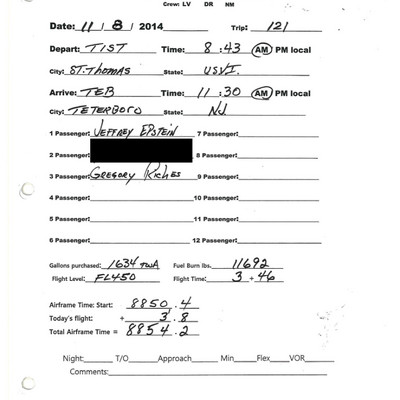 Crew: LV DR NM
Date: 11 / 8 / 2014 Trip: 121
Depart: TIST Time: 8 : 43 AM PM local
City: St. Thomas State: USVI.
Arrive: TEB Time: 11 : 30 AM PM local
City: TETERBORO State: NJ
1 Passenger: JEFFREY EPSTEIN 7 Passenger:
2 Passenger: 8 Passenger:
3 Passenger: GREGORY RICHES 9 Passenger:
4 Passenger: 10 Passenger:
5 Passenger: 11 Passenger:
6 Passenger: 12 Passenger:
Gallons purchased: 1634 TWA Fuel Burn lbs. 11692
Flight Level: FL450 Flight Time: 3 + 46
Airframe Time: Start: 8850 . 4
Today's flight: + 3 . 8
Total Airframe Time = 8854 . 2
Night: T/O Approach Min Flex VOR
Comments: